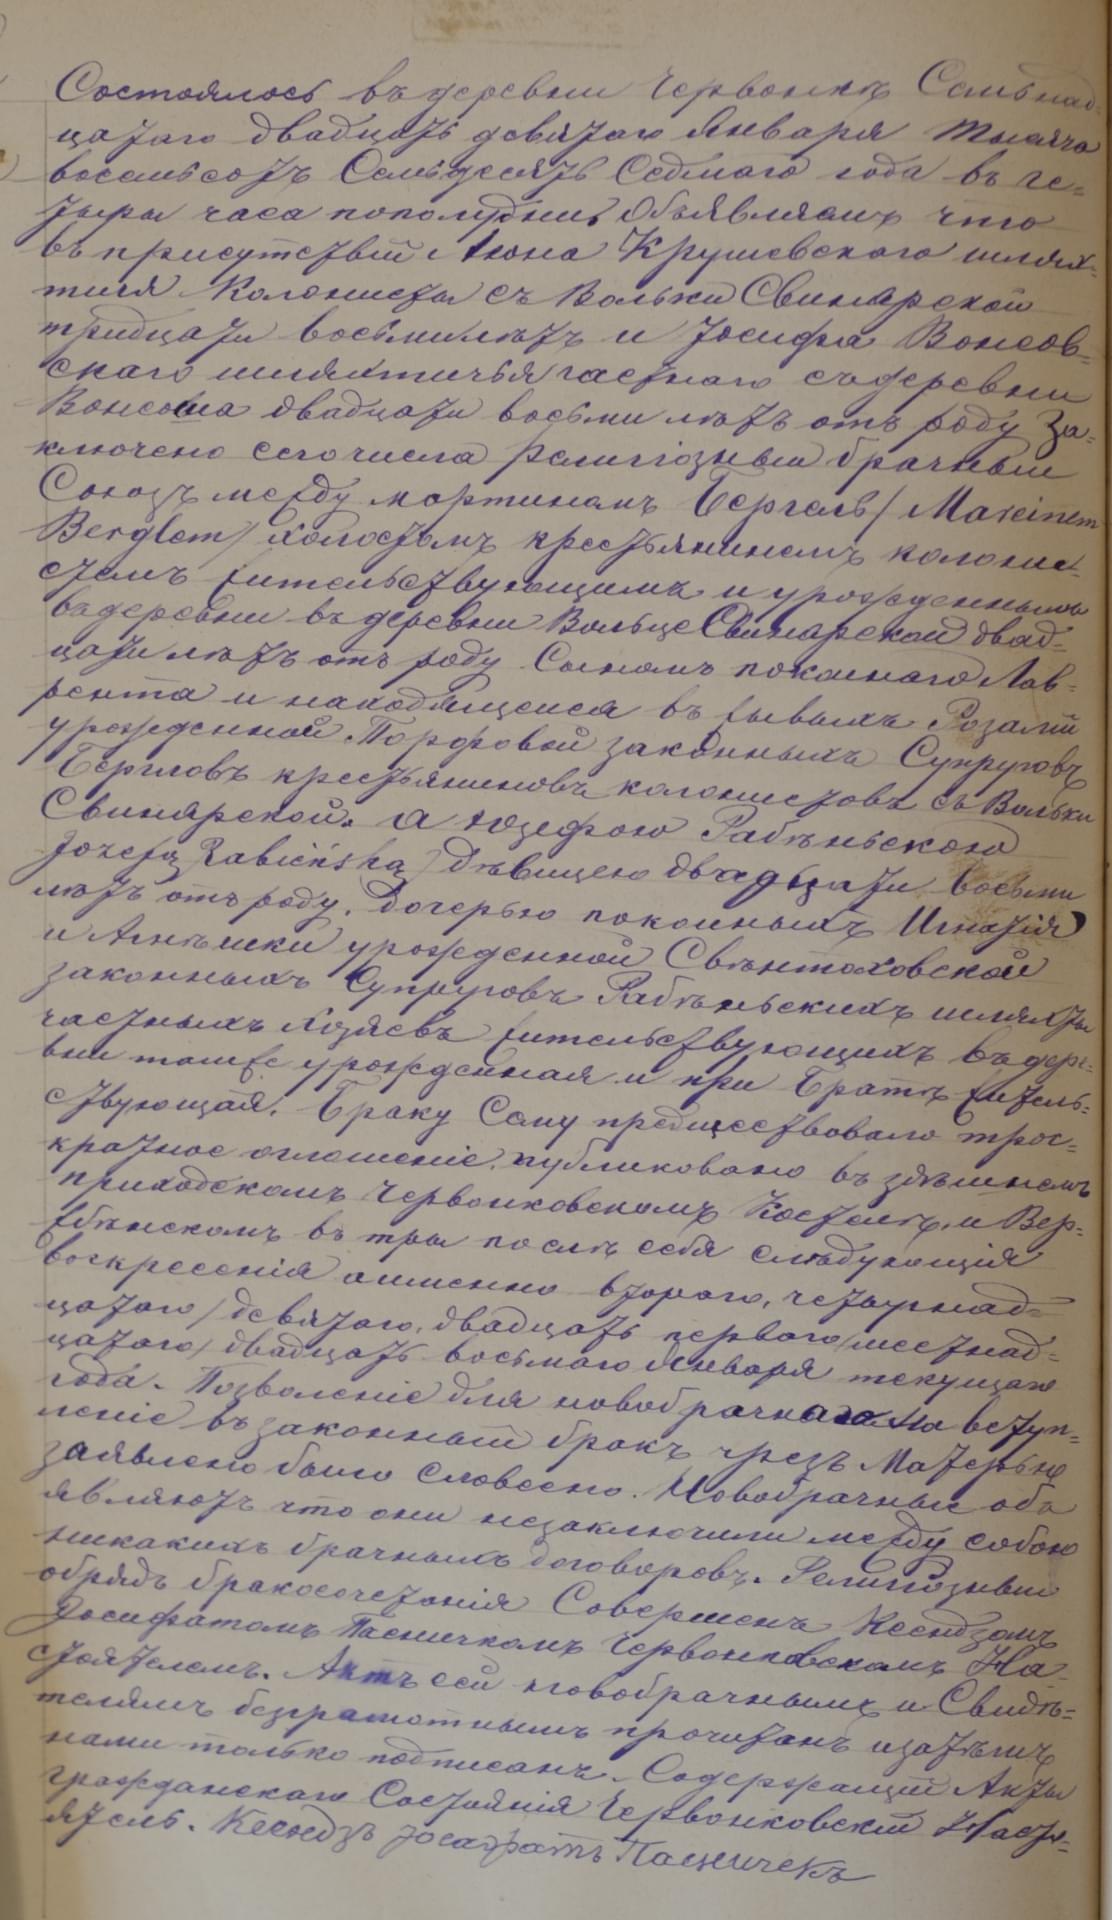 Состоялось въ деревни Червонкѣ Семьнад-
цатаго двадцать девятаго Января тысяча
восемьсотъ Семьдесятъ Седмаго года въ че-
тыры часа пополудни, Объявляемъ что
въ присутствіи Яюна Крушевскаго шлях-
тича Колониста съ Вольки Свинярской
тридцати восьми лѣтъ и Іосифа Вонсов-
скаго шляхтича частнаго съ деревни
Вонсоша двадцати восьми лѣтъ отъ роду За-
ключено сего числа Религіозный брачный
Союзъ между мартиномъ Бергель / Marcinem
Berglem / холостомъ крестьяниномъ колони-
стемъ жительствующимъ и урожденнымъ
въ деревни въ деревни Вольце Свинярской двад-
цати лѣтъ отъ роду Сыномъ покойнаго Лав-
рента и находящейся въ живыхъ Розаліи
урожденной Порфовой законныхъ Супруговъ
Бергловъ крестьяниновъ колонистовъ съ Вольки
Свинярской. а Юзефою Рабѣньскою
Jozefą Rabieńską / дѣвицею двадцати восьми
лѣтъ отъ роду, дочерью покойныхъ Игнатія
и Агнѣшки урожденной Свѣнтоховской
законныхъ Супруговъ Рабѣньскихъ шляхты
частныхъ хозяевъ жительствующихъ въ дере-
вни томже урожденная и при Братѣ житель-
ствующая. Браку Сему предшествовало трое-
кратное оглошеніе, публиковано въ здѣшнемъ
приходскомъ Червонковскомъ Костелѣ, и Вер-
жбѣнскомъ въ тры послѣ себя слѣдующія
воскресенія аименно втораго, четырнад-
цатаго / девятаго, двадцать перваго / шестнад-
цатаго / двадцать восьмаго Января текущаго
года. Позволеніе для новобрачнаго на вступ-
леніе въ законный бракъ чрезъ Матерью
заявлено было словесно. Новобрачные объ
являютъ что они незаключили между собою
никакихъ брачныхъ договоровъ. Религіозный
обрядъ бракосочетанія Совершенъ Ксендзомъ
Іосафатомъ Пасничкомъ Червонковскомъ На-
стоятелемъ. Актъ сей новобрачнымъ и Свидѣ-
телямъ безграмотнымъ прочитанъ изатѣмъ
нами только подписанъ. Содержащій Акты
гражданскаго Состоянія Червонковскій Насто-
ятель. Ксендзъ Іосафатъ Пасничекъ